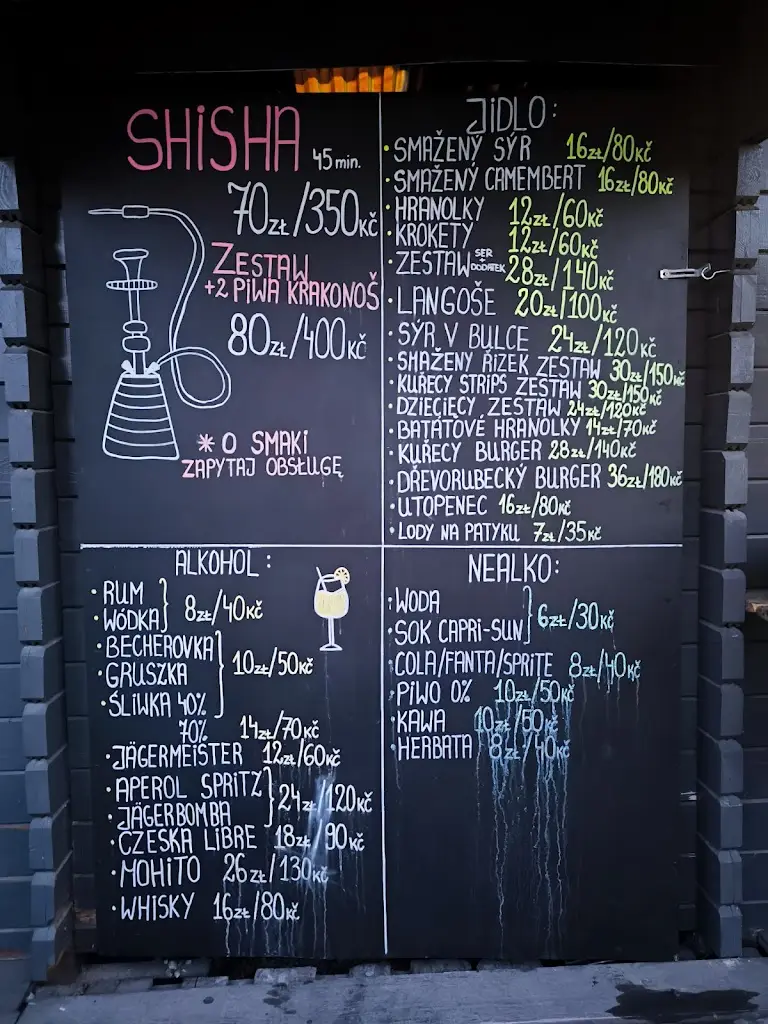 SHISHA 45 min.
70zł/350kč
ZESTAW
+2 PIWA KRAKONOŠ
80zł/400kč
* O SMAKI
ZAPYTAJ OBSŁUGĘ
JÍDLO:
• SMAŽENÝ SÝR 16zł/80kč
• SMAŽENÝ CAMEMBERT 16zł/80kč
• HRANOLKY 12zł/60kč
• KROKETY 12zł/60kč
• ZESTAW SER + DODATEK 28zł/140kč
• LANGOŠE 20zł/100kč
• SÝR V BULCE 24zł/120kč
• SMAŽENY ŘIZEK ZESTAW 30zł/150kč
• KUŘECY STRIPS ZESTAW 30zł/150kč
• DZIECIĘCY ZESTAW 24zł/120kč
• BATÁTOVÉ HRANOLKY 14zł/70kč
• KUŘECÝ BURGER 28zł/140kč
• DŘEVORUBECKÝ BURGER 36zł/180kč
• UTOPENEC 16zł/80kč
• LODY NA PATYKU 7zł/35kč
ALKOHOL:
• RUM
• WÓDKA } 8zł/40kč
• BECHEROVKA
• GRUSZKA } 10zł/50kč
• ŚLIWKA 40%
70% 14zł/70kč
• JÄGERMEISTER 12zł/60kč
• APEROL SPRITZ
• JÄGERBOMBA } 24zł/120kč
• CZESKA LIBRE 18zł/90kč
• MOHITO 26zł/130kč
• WHISKY 16zł/80kč
NEALKO:
• WODA
• SOK CAPRI-SUN } 6zł/30kč
• COLA/FANTA/SPRITE 8zł/40kč
• PIWO 0% 10zł/50kč
• KAWA 10zł/50kč
• HERBATA 8zł/40kč